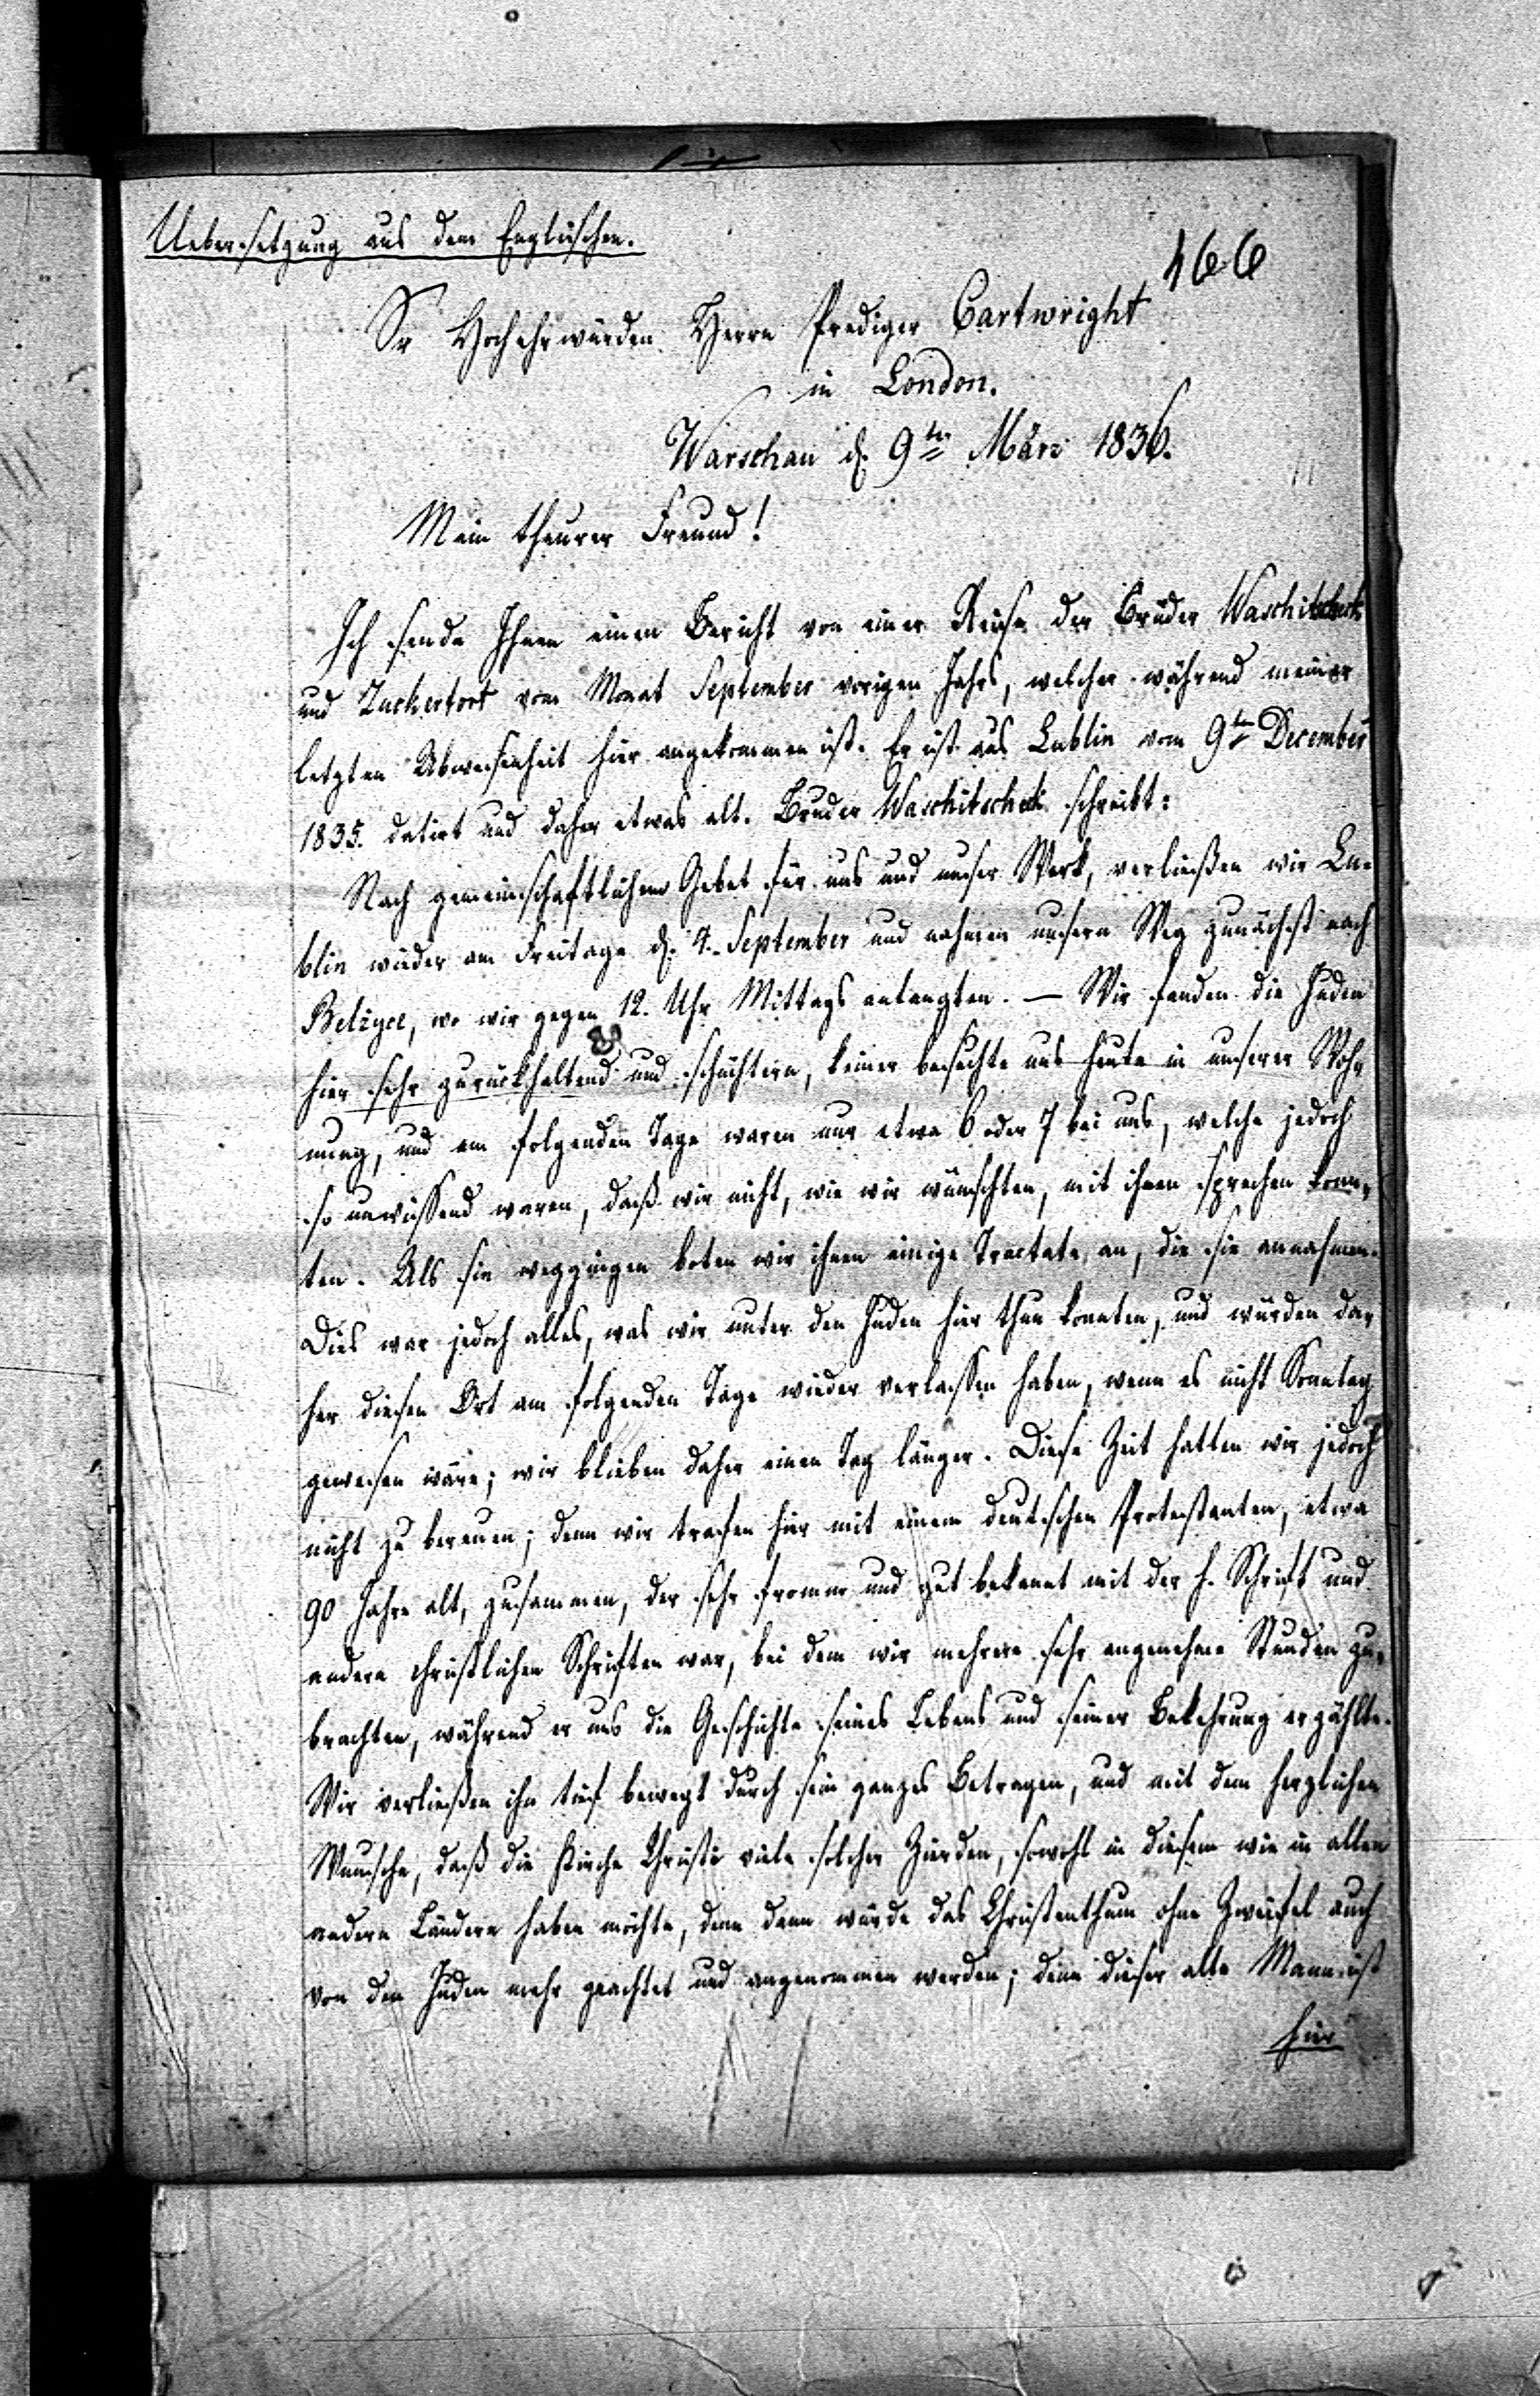 Uebersetzung aus dem Englischen.
466
Sr Hochehrwürden Herrn Prediger Cartwright
in London.
Warschau d. 9ten März 1836.
Mein theurer Freund!
Ich sende Ihnen einen Bericht von einer Reise der Brüder Waschitscheck
und Zuckertort vom Monat September vorigen Jahrs, welcher während meiner
letzten Abwesenheit hier angekommen ist. Er ist aus Lublin vom 9ten December
1835. datirt und daher etwas alt. Bruder Waschitscheck schreibt:
Nach gemeinschaftlichem Gebet für uns und unser Werk, verließen wir Lu-
blin wieder am Freitage d. 4. September und nahmen unsern Weg zunächst nach
Belżyce, wo wir gegen 12. Uhr Mittags anlangten. — Wir fanden die Juden
hier sehr zurückhaltend und schüchtern, keiner besuchte uns heute in unserer Woh-
nung, und am folgenden Tage waren nur etwa 6 oder 7 bei uns, welche jedoch
so unwissend waren, daß wir nicht, wie wir wünschten, mit ihnen sprechen konn-
ten. Als sie weggingen boten wir ihnen einige Tractate an, die sie annahmen.
Dies war jedoch alles, was wir unter den Juden hier thun konnten, und würden da-
her diesen Ort am folgenden Tage wieder verlassen haben, wenn es nicht Sonntag
gewesen wäre; wir blieben daher einen Tag länger. Diese Zeit hatten wir jedoch
nicht zu bereuen; denn wir trafen hier mit einem deutschen Protestanten, etwa
90 Jahre alt, zusammen, der sehr fromm und gut bekannt mit der h. Schrift und
andern christlichen Schriften war, bei dem wir mehrere sehr angenehme Stunden zu-
brachten, während er uns die Geschichte seines Lebens und seiner Bekehrung erzählte.
Wir verließen ihn tief bewegt durch sein ganzes Betragen, und mit dem herzlichen
Wunsche, daß die Kirche Christi viele solcher Zierden, sowohl in diesem wie in allen
andern Ländern haben möchte, denn dann würde das Christenthum ohne Zweifel auch
von den Juden mehr geachtet und angenommen werden; denn dieser alte Mann ist
hier